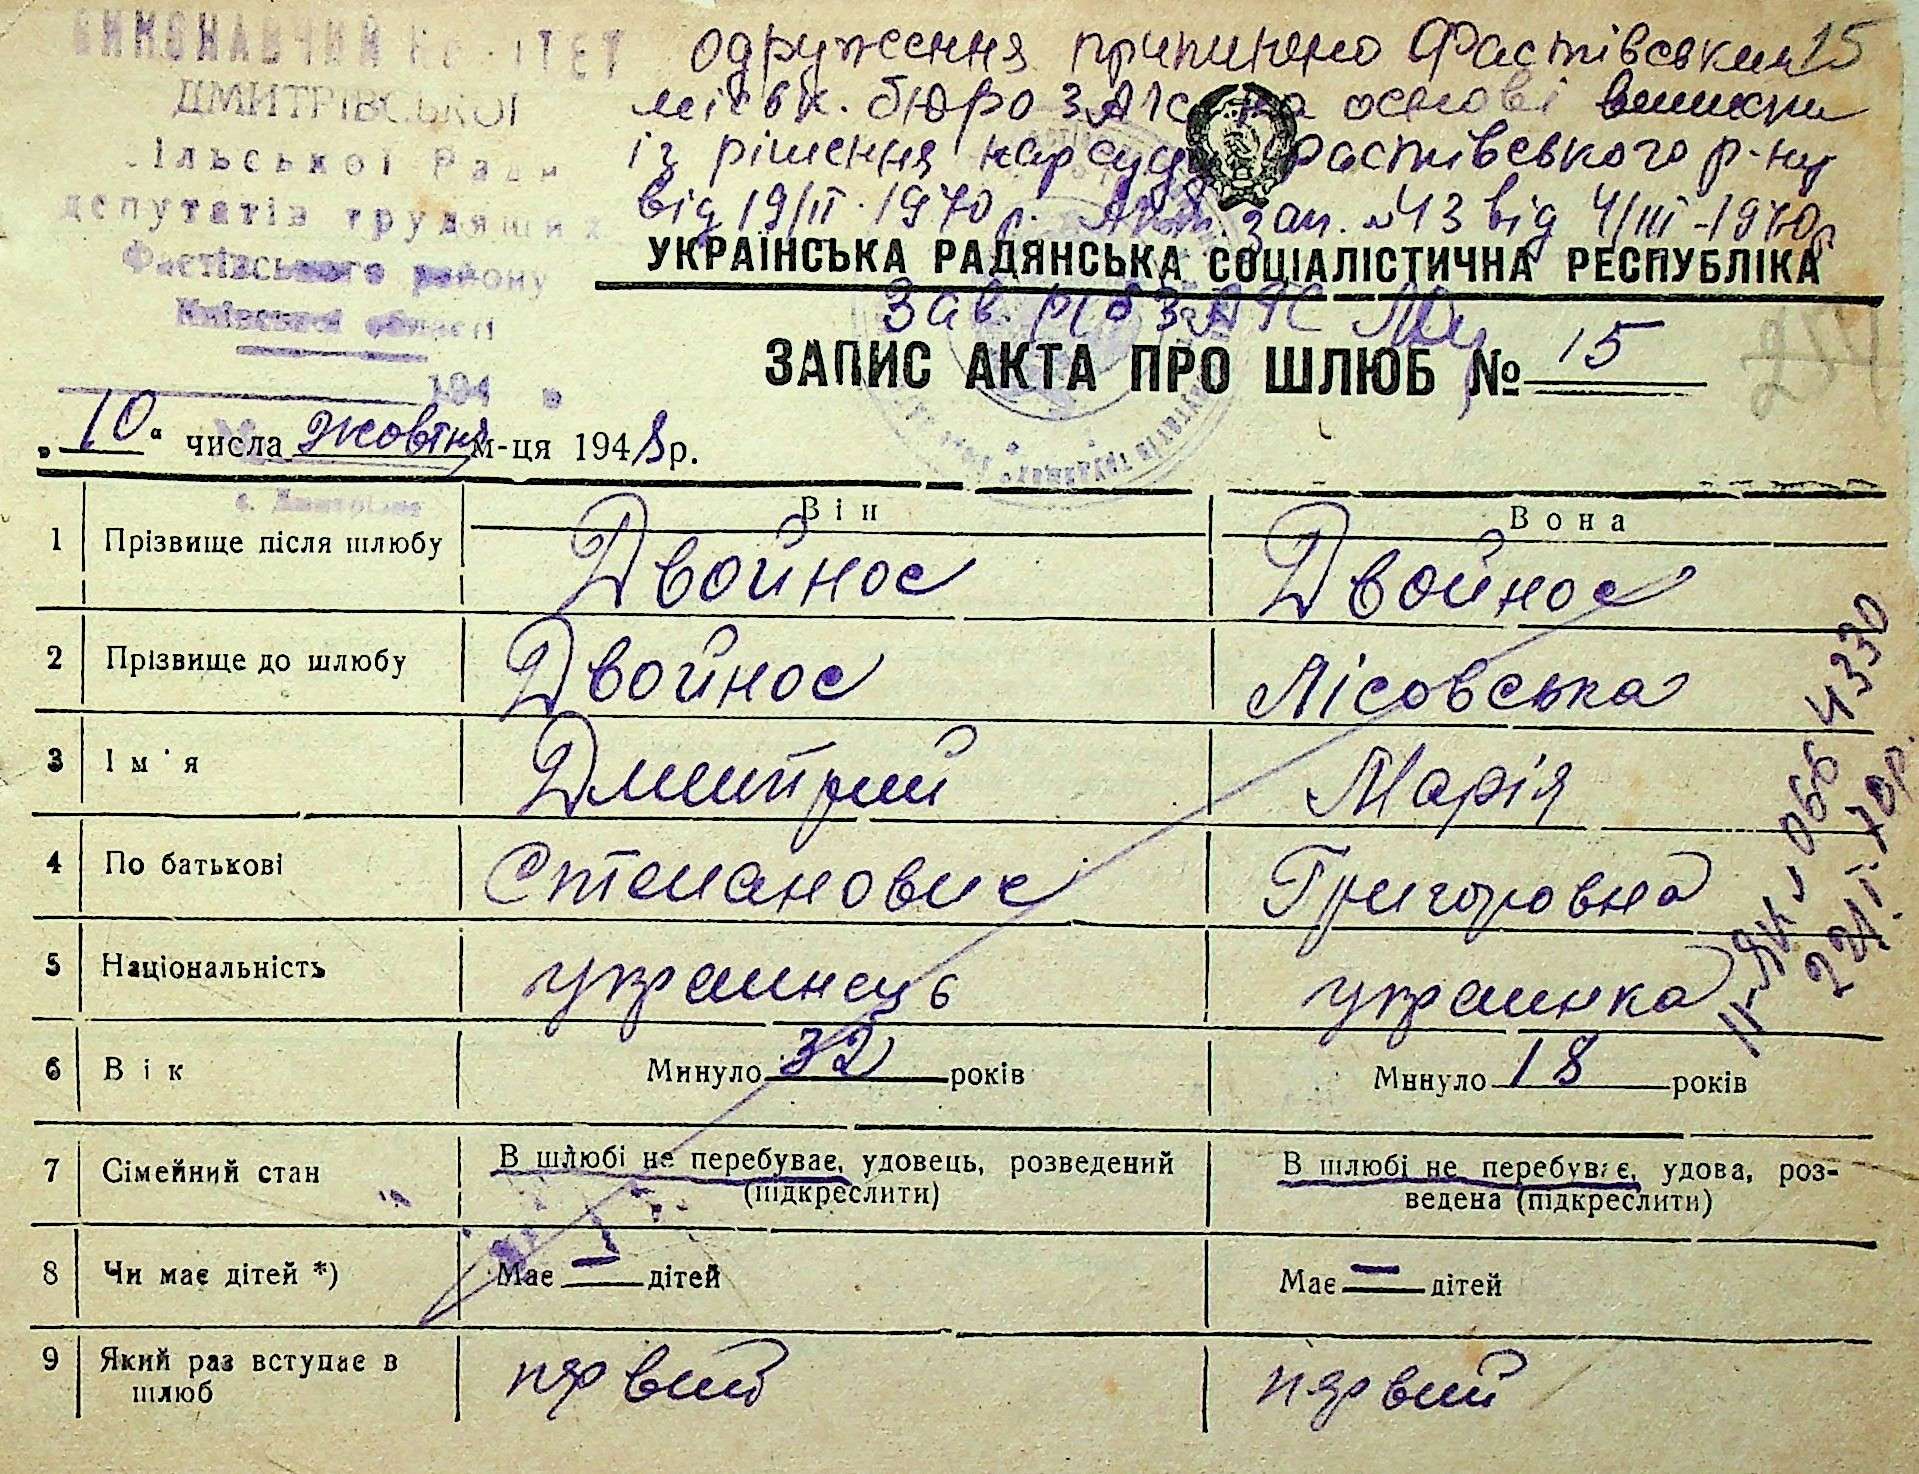 ВИКОНАВЧИЙ КОМІТЕТ
ДМИТРІВСЬКОЇ
Сільської Ради
депутатів трудящих
Фастівського району
Київської області
194
с. Дмитрівка
одруження припинено Фастівським
міськ. бюро ЗАГС на основі виписки
із рішення нарсуду Фастівського р-ну
від 19/II-1970 р. Акт. зап. №43 від 4/III-1970р
15
УКРАЇНСЬКА РАДЯНСЬКА СОЦІАЛІСТИЧНА РЕСПУБЛІКА
Зав. р/б ЗАГС
ЗАПИС АКТА ПРО ШЛЮБ № 15
254
„10“ числа жовтня м-ця 1948 р.
Він Вона
1 Прізвище після шлюбу Двойнос Двойнос
2 Прізвище до шлюбу Двойнос Лісовська
3 Ім'я Дмитрий Марія
4 По батькові Степанович Григоровна
5 Національність украинець украинка
6 Вік Минуло 32 років Минуло 18 років
7 Сімейний стан В шлюбі не перебуває, удовець, розведений
(підкреслити)
В шлюбі не перебуває, удова, роз-
ведена (підкреслити)
8 Чи має дітей *) Має — дітей Має — дітей
9 Який раз вступає в
шлюб
пярвий пярвий
II-ЯК № 0664330